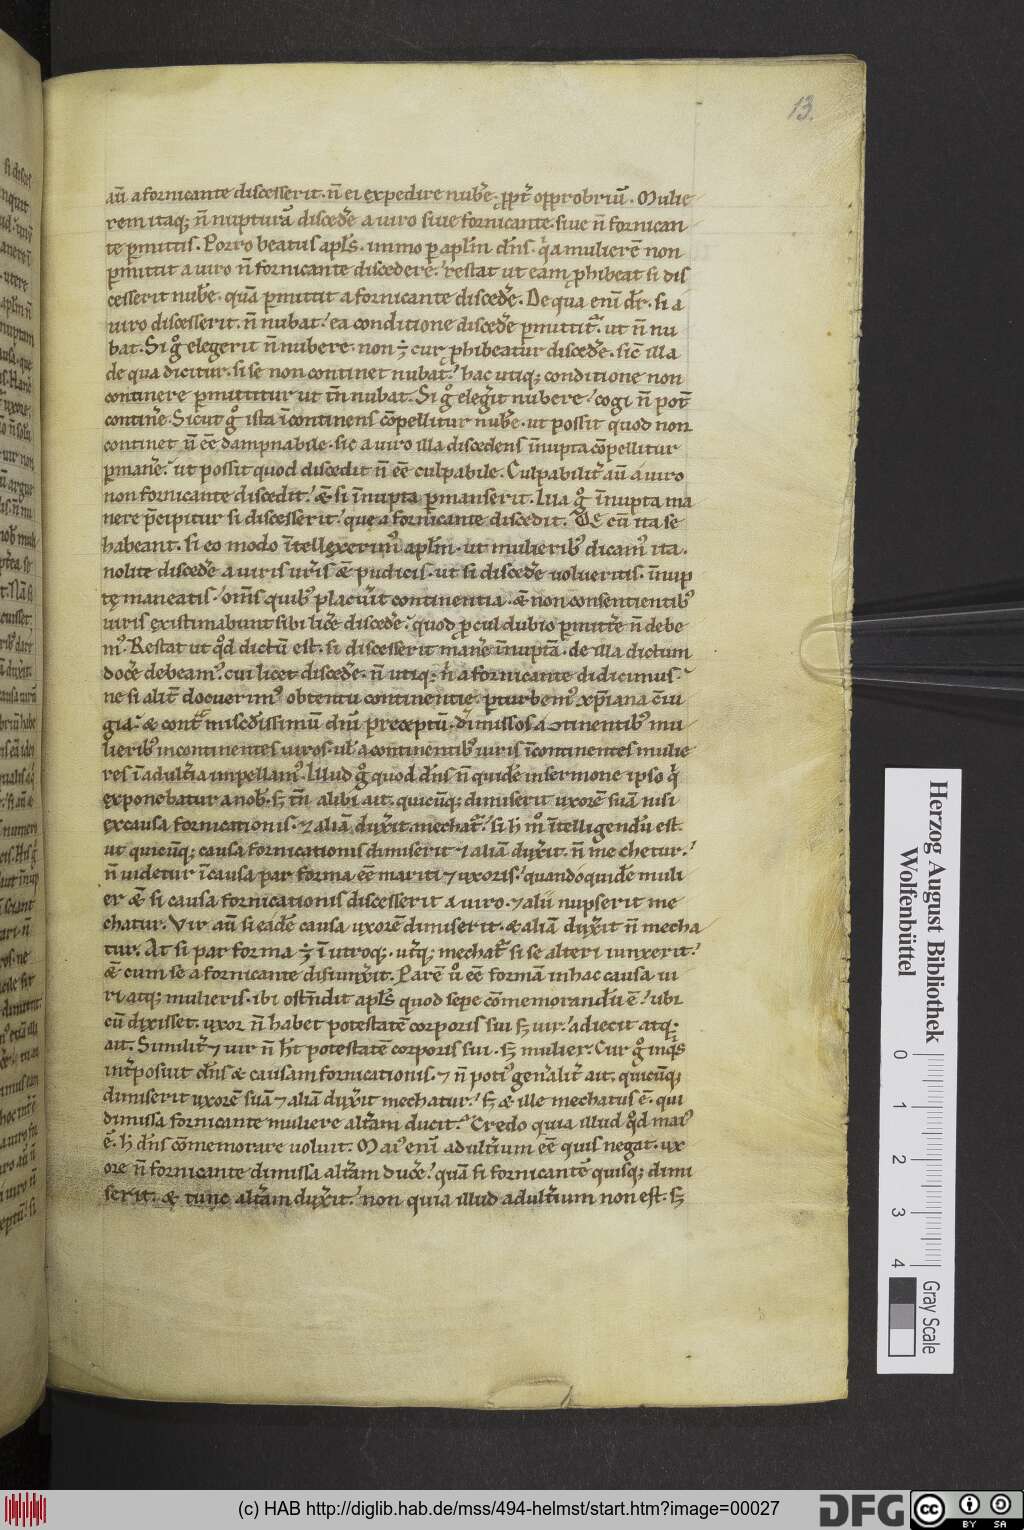 13.
aū a fornicante discesserit. n̄ ei expedire nub̄e. ꝓpt̄ opprobriū. Mulie
rem itaq; n̄ nupturā disced̄e a uiro siue fornicante. siue n̄ fornican
te ꝑmittis. Porro beatus apl̄s. immo ꝑ apl̄m dn̄s. q̄a mulierē non
ꝑmittit a uiro n̄ fornicante discedere. restat ut eam ꝓhibeat si dis
cesserit nub̄e. quā ꝑmittit a fornicante disced̄e. De qua enī dr̄. si a
uiro discesserit. n̄ nubat. ea conditione disced̄e ꝑmittit᷑. ut n̄ nu
bat. Si g͛ elegerit n̄ nubere. non ÷ cur ꝓhibeatur disced̄e. sic̄ illa
de qua dicitur. si se non continet nubat. hac utiq; conditione non
continere ꝑmittitur ut tn̄ nubat. Si g͛ eleḡit nubere. cogi n̄ pot̄
contin̄e. Sicut g͛ ista īcontinens cōpellitur nub̄e. ut possit quod non
continet n̄ eē dampnabile. sic a uiro illa discedens īnupta cōpellitur
ꝑman̄e. ut possit quod discedit n̄ eē culpabile. Culpabilit̄ aū a uiro
non fornicante discedit. & si īnupta ꝑmanserit. Iua g͛ īnupta ma
nere p̄cipitur si discesserit. que a fornicante discedit. DE cū ita se
habeant. si eo modo ītellexerim᷒ apl̄m. ut mulierib᷒ dicam᷒ ita.
nolite disced̄e a uiris ur̄is & pudicis. ut si disced̄e uolueritis. īnup
tę maneatis. om̄s quib᷒ placu̅it continentia. & non consentientib᷒
uiris existimabunt sibi lic̄e disced̄e. quod ꝓcul dubio ꝑmitt̄e n̄ debe
m᷒. Restat ut qd̄ dictū est. si discesserit man̄e īnuptā. de illa dictum
doc̄e debeam᷒. cui licet disced̄e. n̄ utiq; n̄ a fornicante didicimus.
ne si alit̄ docuerim᷒ obtentu continentie. ꝑturbem᷒ xp̄iana c̄iu
gia. & cont̄ misc̄dissimū dn̄i preceptū. dimissos a ↄtinentib᷒ mu
lierib᷒ incontinentes uiros. ul̄ a continentib᷒ uiris īcontinentes mulie
res ī adult̄ia impellam᷒. Illud g͛ quod dn̄s n̄ quidē in sermone ipso q̄
exponebatur a nob̄. s; tn̄ alibi ait. quicūq; dimiserit uxorē suā nisi
ex causa fornicationis. ⁊ aliā dux̄it. mechat᷑. si h m͛ ītelligendū est.
ut quicūq; causa fornicationis dimiserit ⁊ aliā dux̄it. n̄ mechetur.
n̄ uidetur ī causa par forma eē mariti ⁊ uxoris. quandoquidē muli
er & si causa fornicationis discesserit a uiro. ⁊ alii nupserit me
chatur. Vir aū si eadē causa uxorē dimiserit. & aliā dux̄it n̄ mecha
tur. At si par forma ÷ ī utroq;. utq; mechat᷑ si se alteri iunxerit.
& cum se a fornicante disiunx̄it. Parē u͛ eē formā in hac causa ui
ri atq; mulieris. ibi ostn̄dit apl̄s quod sepe cōmemorandū ē. ubi
cū dixisset. uxor n̄ habet potestatē corporis sui s; uir. adiecit atq;
ait. Similit̄ ⁊ uir n̄ h̄t potestatē corporis sui. s; mulier. Cur g͛ inq̄s
int̄posuit dn̄s & causam fornicationis. ⁊ n̄ poti᷒ gen̄alit̄ ait. quicūq;
dimiserit uxorē suā ⁊ aliā dux̄it mechatur. s; & ille mechatus ē. qui
dimissa fornicante muliere alt̄am ducit. Credo quia illud qd̄ mai᷒
ē. h dn̄s cōmemorare uoluit. Mai᷒ enī adult̄ium eē quis negat. ux
ore n̄ fornicante dimissa alt̄am duc̄e. quā si fornicantē quisq; dimi
serit. & tunc alt̄am dux̄it. non quia illud adult̄ium non est. s;
Herzog August Bibliothek
Wolfenbüttel
0 1 2 3 4
Gray Scale
(c) HAB http://diglib.hab.de/mss/494-helmst/start.htm?image=00027
DFG
cc BY SA